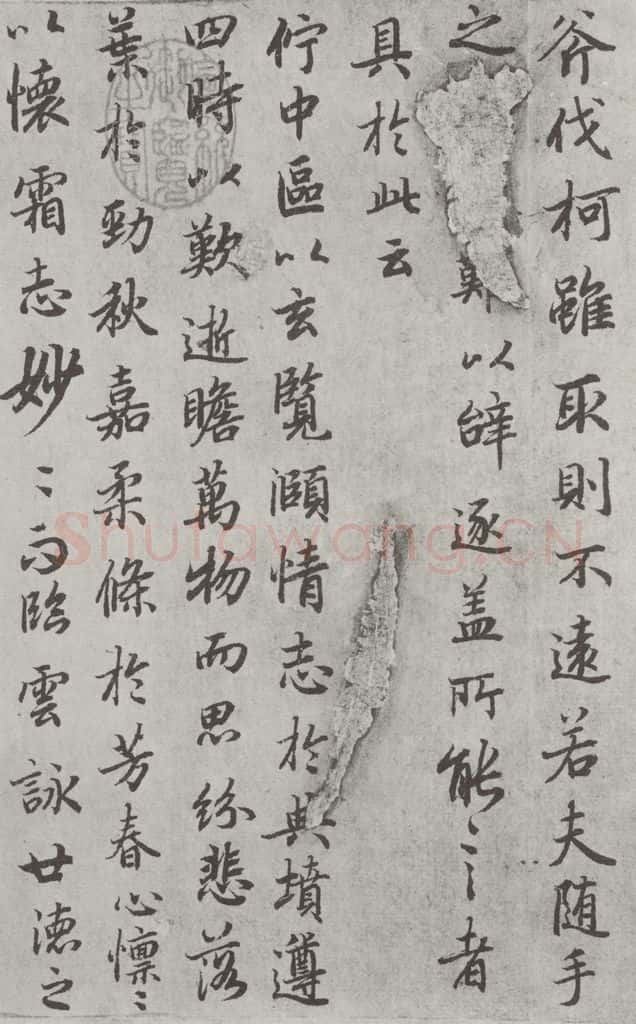 斧伐柯雖取則不遠若夫随手
之以辝逐盖所能言者
具於此云
佇中區以玄覽頤情志於典墳遵
四時以歎逝瞻萬物而思紛悲落
葉於勁秋嘉柔條於芳春心懍〻
以懷霜志妙〻而臨雲詠廿徳之
Shufawang.CN